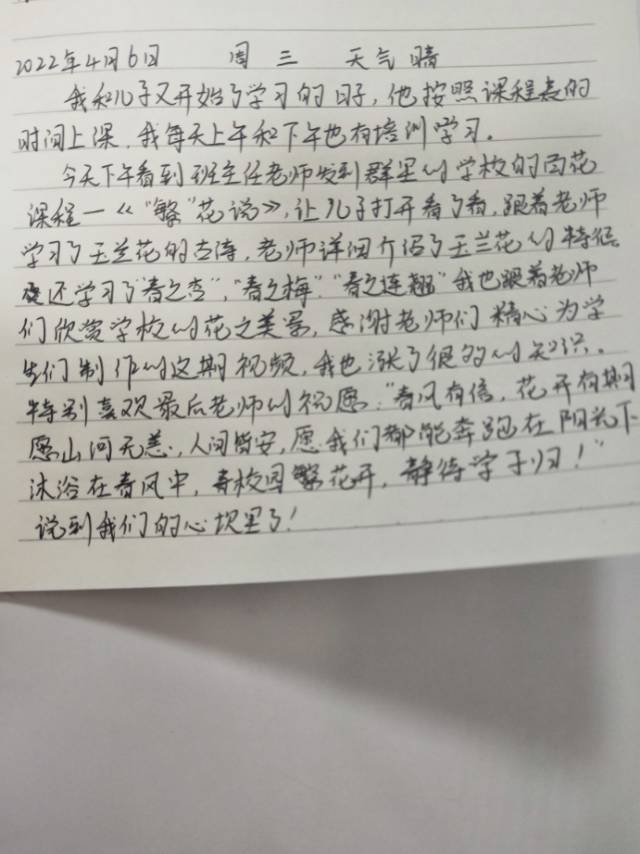 2022年4月6日 周三 天气晴
我和儿子又开始了学习的日子,他按照课程表的
时间上课,我每天上午和下午也有培训学习。
今天下午看到班主任老师发到群里的学校的百花
课程一《"繁"花说》,让儿子打开看了看,跟着老师
学习了玉兰花的古诗,老师详细介绍了玉兰花的特征
还学习了"春之杏","春之梅""春之连翘"我也跟着老师
们欣赏学校的花之美景,感谢老师们精心为学
生们制作的这期视频,我也涨了很多的知识。
特别喜欢最后老师的祝愿:"春风有信,花开有期
愿山河无恙,人间皆安,愿我们都能奔跑在阳光下
沐浴在春风中,春校园繁花开,静待学子归!"
说到我们的心坎里了!